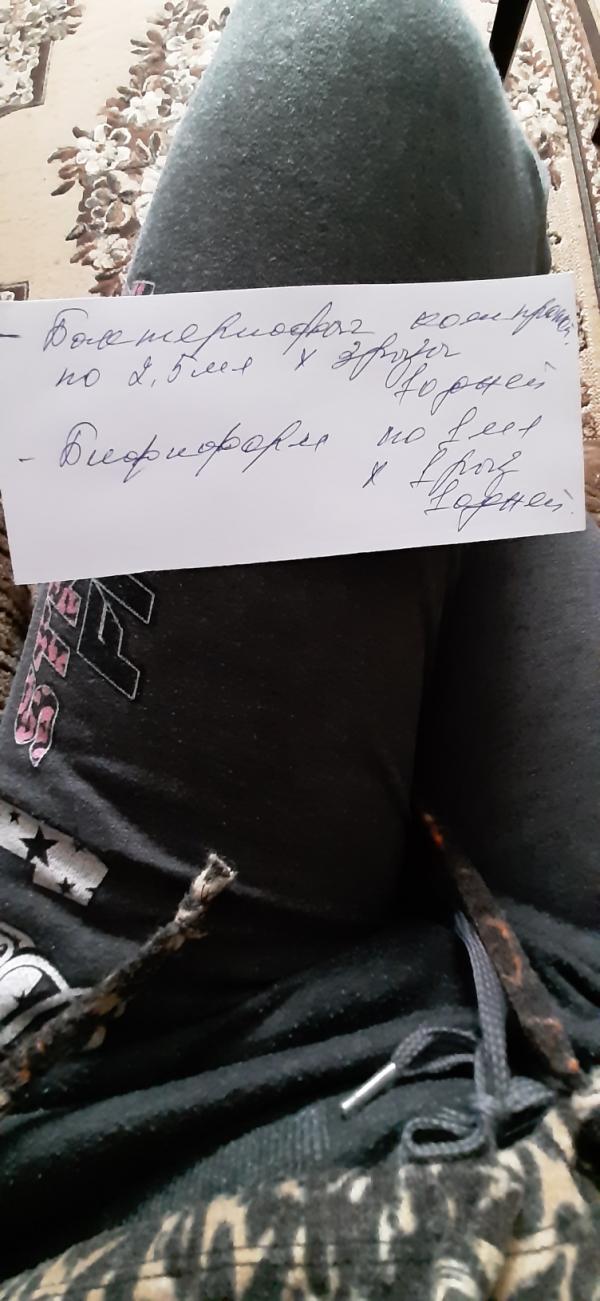 - Бактериофаг колипротей.
по 2,5 мл х 3 раза
10 дней
- Бифиформ по 1 мл
х 1 раз
10 дней.